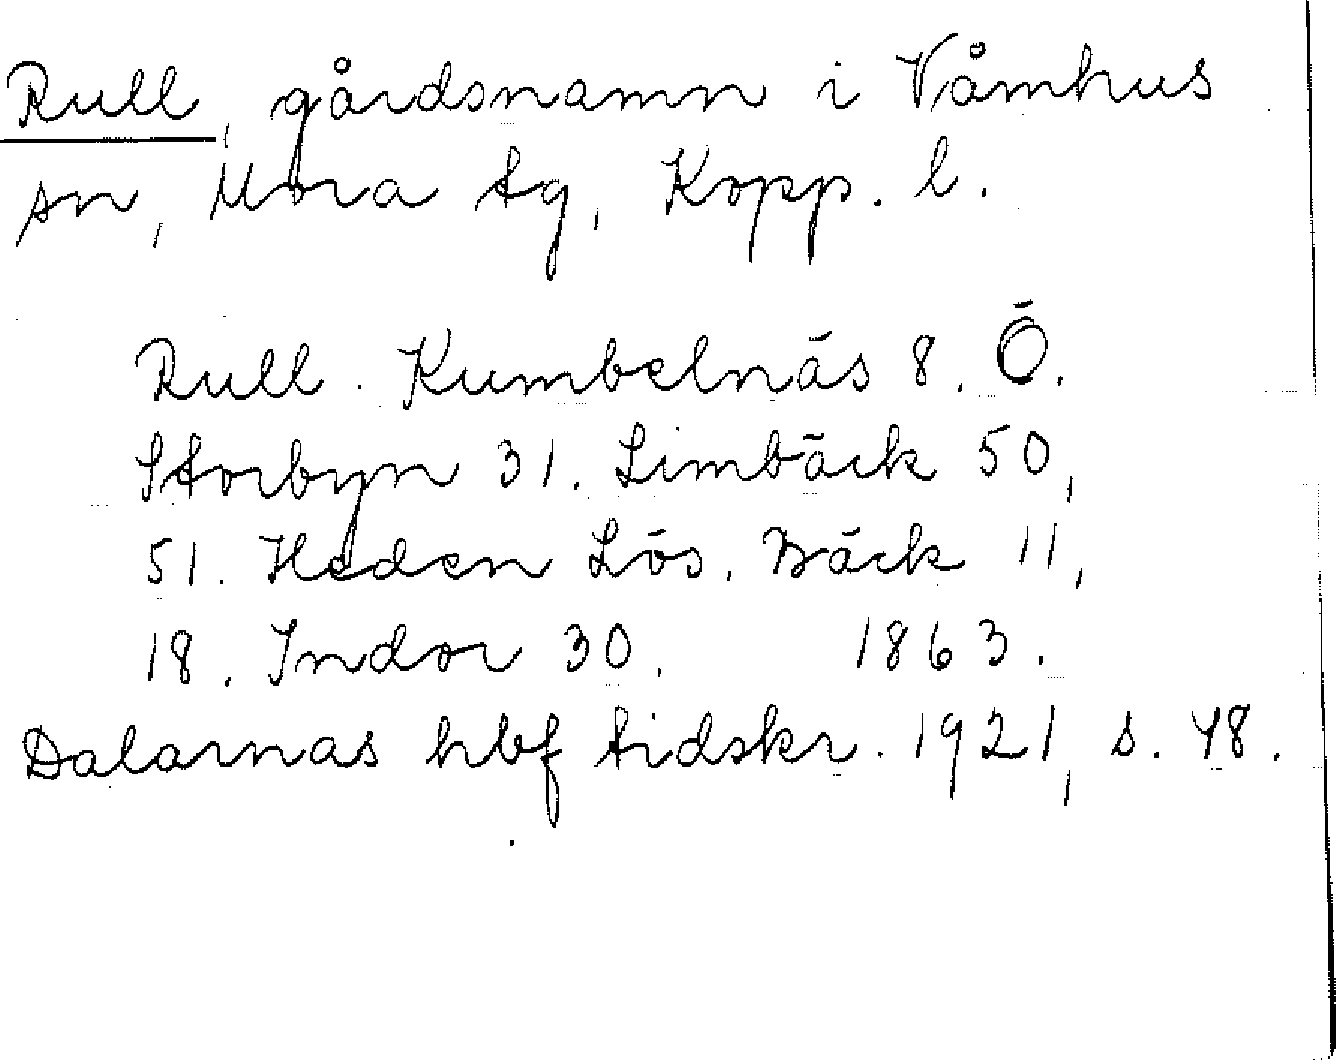 Rull, gårdsnamn i Våmhus
sn, Mora tg, Kopp. l.
Rull. Kumbelnäs 8. Ö.
Storbyn 31. Limbäck 50,
51. Heden Lös. Bäck 11,
18. Indor 30. 1863.
Dalarnas hbf tidskr. 1921, s. 48.